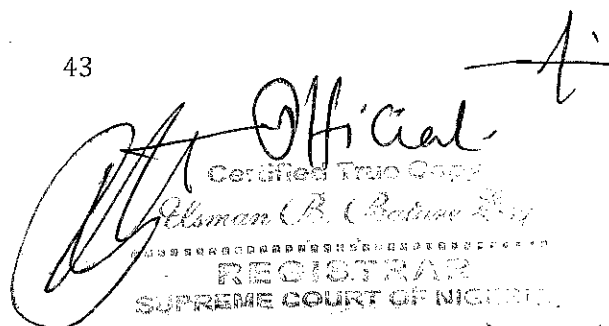 43
Official.
Certified True Copy
Usman B. Bature Esq
REGISTRAR
SUPREME COURT OF NIGERIA